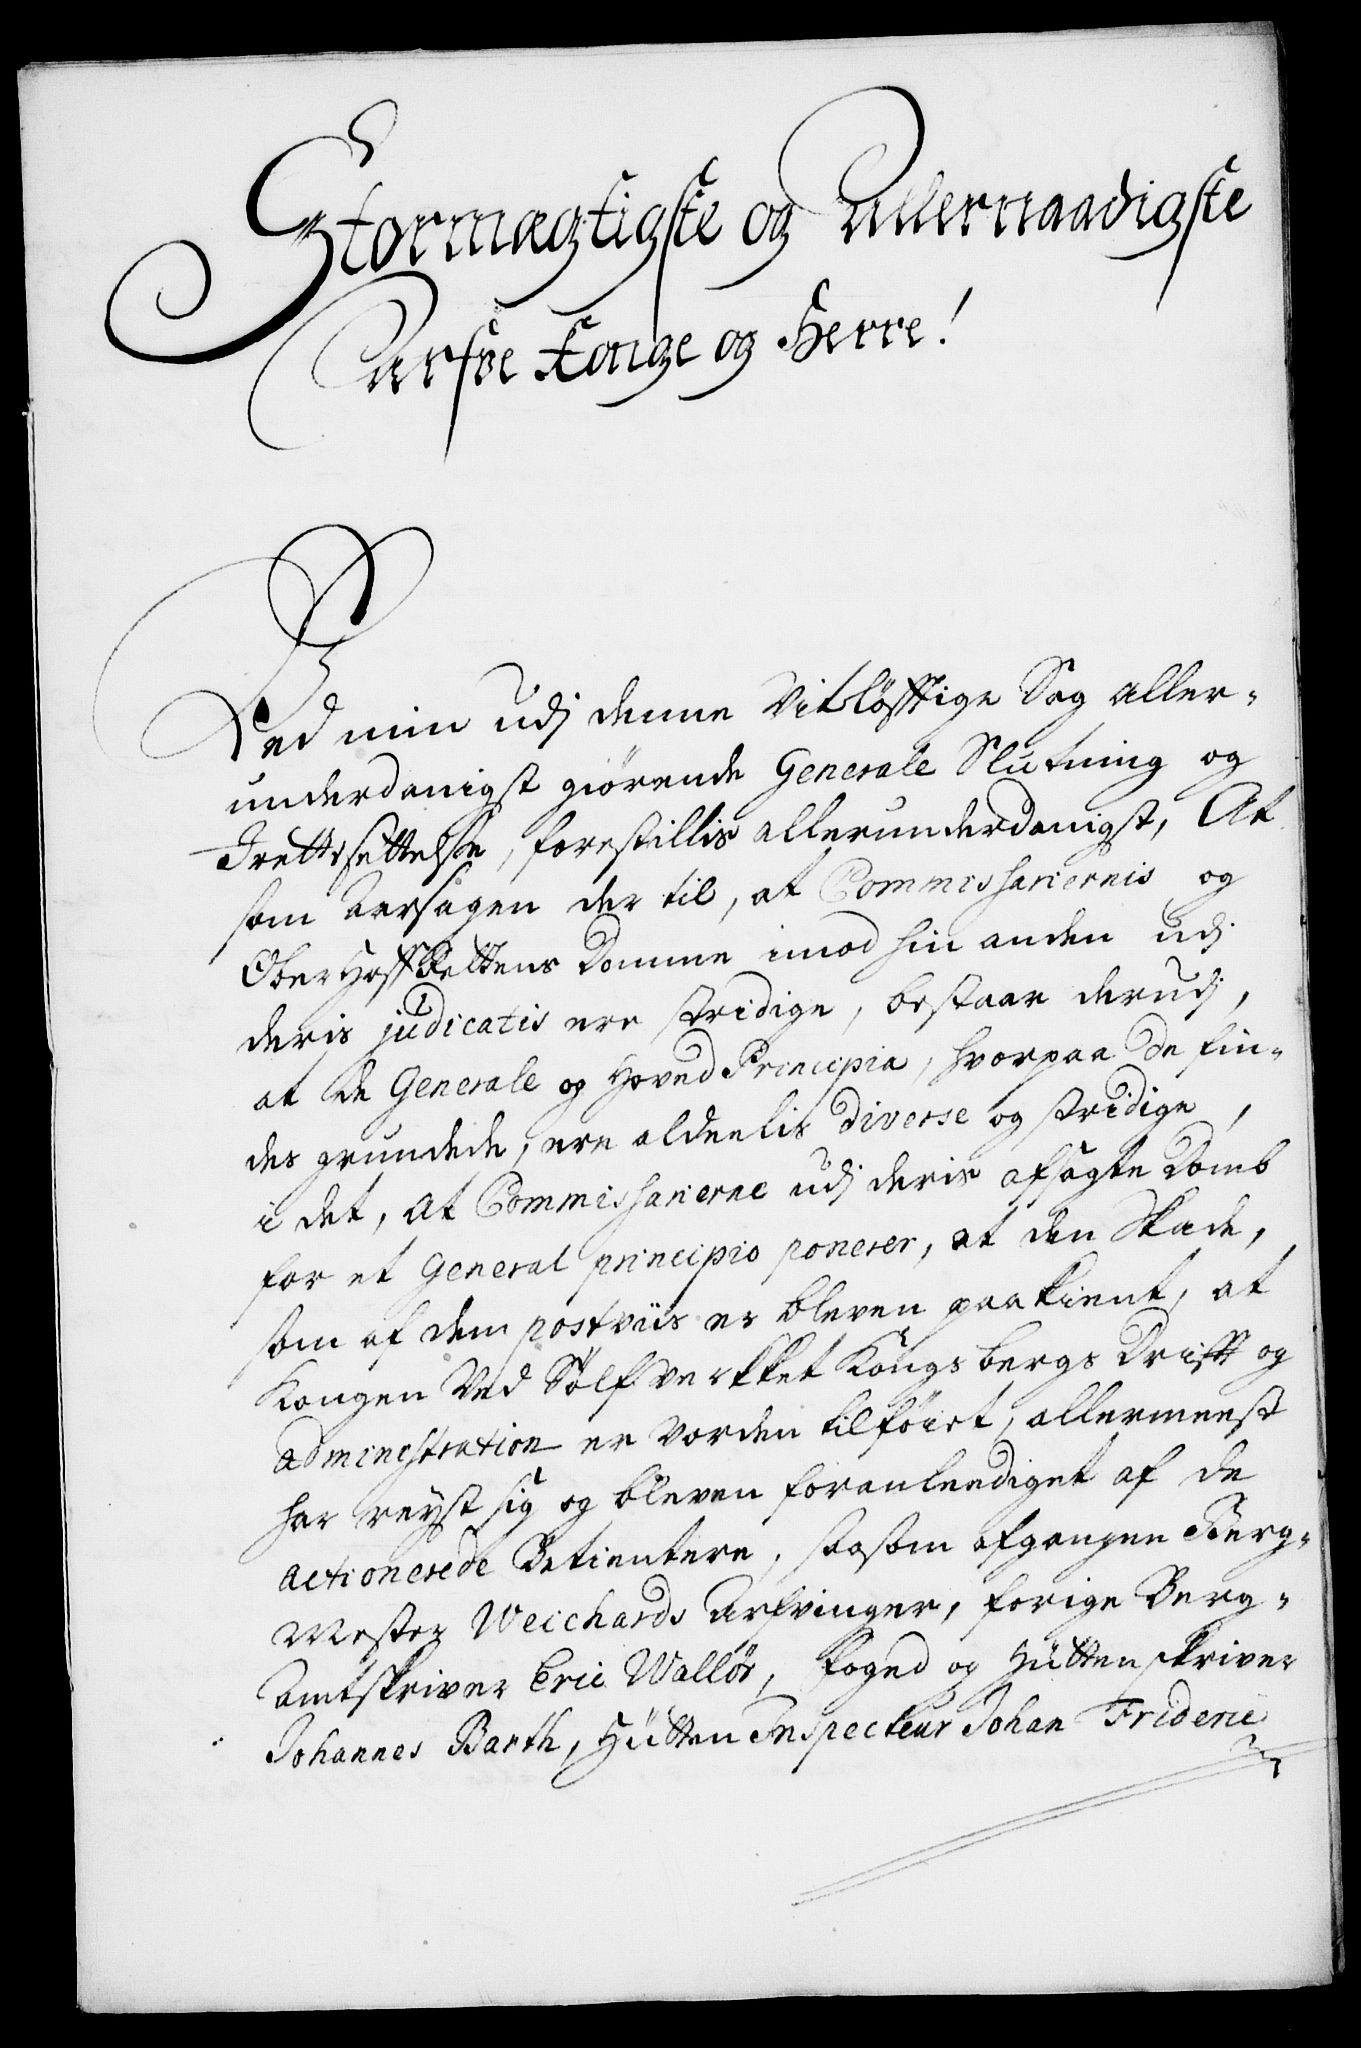 Stormægtigste og Allernaadigste
Arfve Konge og Herre!
Ved min udj denne Vitløfftige Sag aller-
underdanigst giørende Generale Slutning og
Irettesettelse, forestillis allerunderdanigst, At
som Aarsagen der til, at Commissariernis og
Ober Hoff Rettens Domme imod hin anden udj
deris judicatis ere stridige, bestaar derudj,
at de Generale og Hoved Principia, hvorpaa de fin-
des grundede, ere aldeelis diverse og stridige,
i det, at Commissarierne udj deris afsagte Domb
for et General principio ponerer, at den Skade,
som af dem postviis er bleven paakient, at
Kongen Ved Sølfverkket Kongsbergs Drifft og
administration er vorden tilføiet, allermeest
har reyst sig og bleven foranleediget af de
actionerede Betientere, saasom afgangne Berg-
Mester Weichards Arfvinger, forige Berg-
Amtskriver Eric Wallør, foged og Hüttenskriver
Johannes Barth, Hütten Inspecteur Johan Frideric